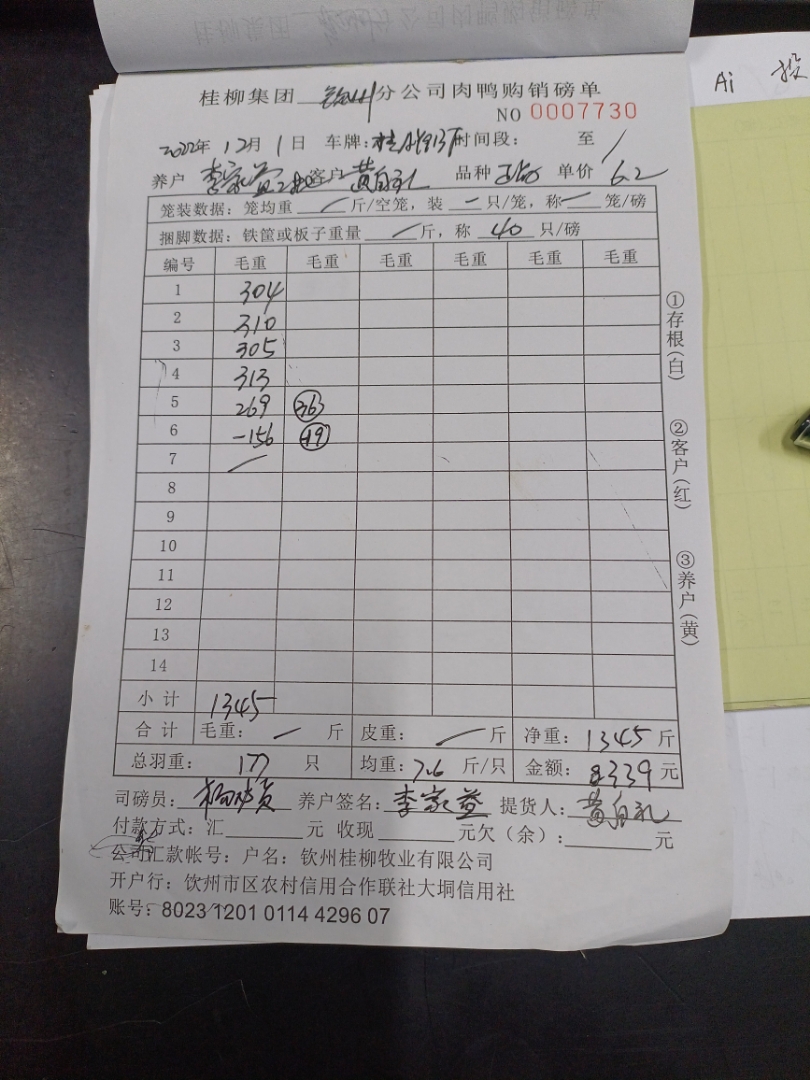 Ai 投
桂柳集团 钦州 分公司肉鸭购销磅单
NO 0007730
2022年 12月 1日 车牌: 时间段: 至 /
养户 李家益 客户 黄自礼 品种 单价 6.2
笼装数据: 笼均重 / 斤/空笼, 装 一 只/笼, 称 一 笼/磅
捆脚数据: 铁筐或板子重量 / 斤, 称 40 只/磅
编号 毛重 毛重 毛重 毛重 毛重 毛重
1 304
2 310
3 305
4 313
5 269 36
6 -156 -19
7 /
8
9
10
11
12
13
14
小计 1345
合计 毛重: 一 斤 皮重: / 斤 净重: 1345 斤
总羽重: 177 只 均重: 7.6 斤/只 金额: 8339 元
司磅员: 养户签名: 李家益 提货人: 黄自礼
付款方式: 汇 元 收现 元欠(余): 元
公司汇款帐号: 户名: 钦州桂柳牧业有限公司
开户行: 钦州市区农村信用合作联社大垌信用社
账号: 8023 1201 0114 4296 07
①存根(白)
②客户(红)
③养户(黄)